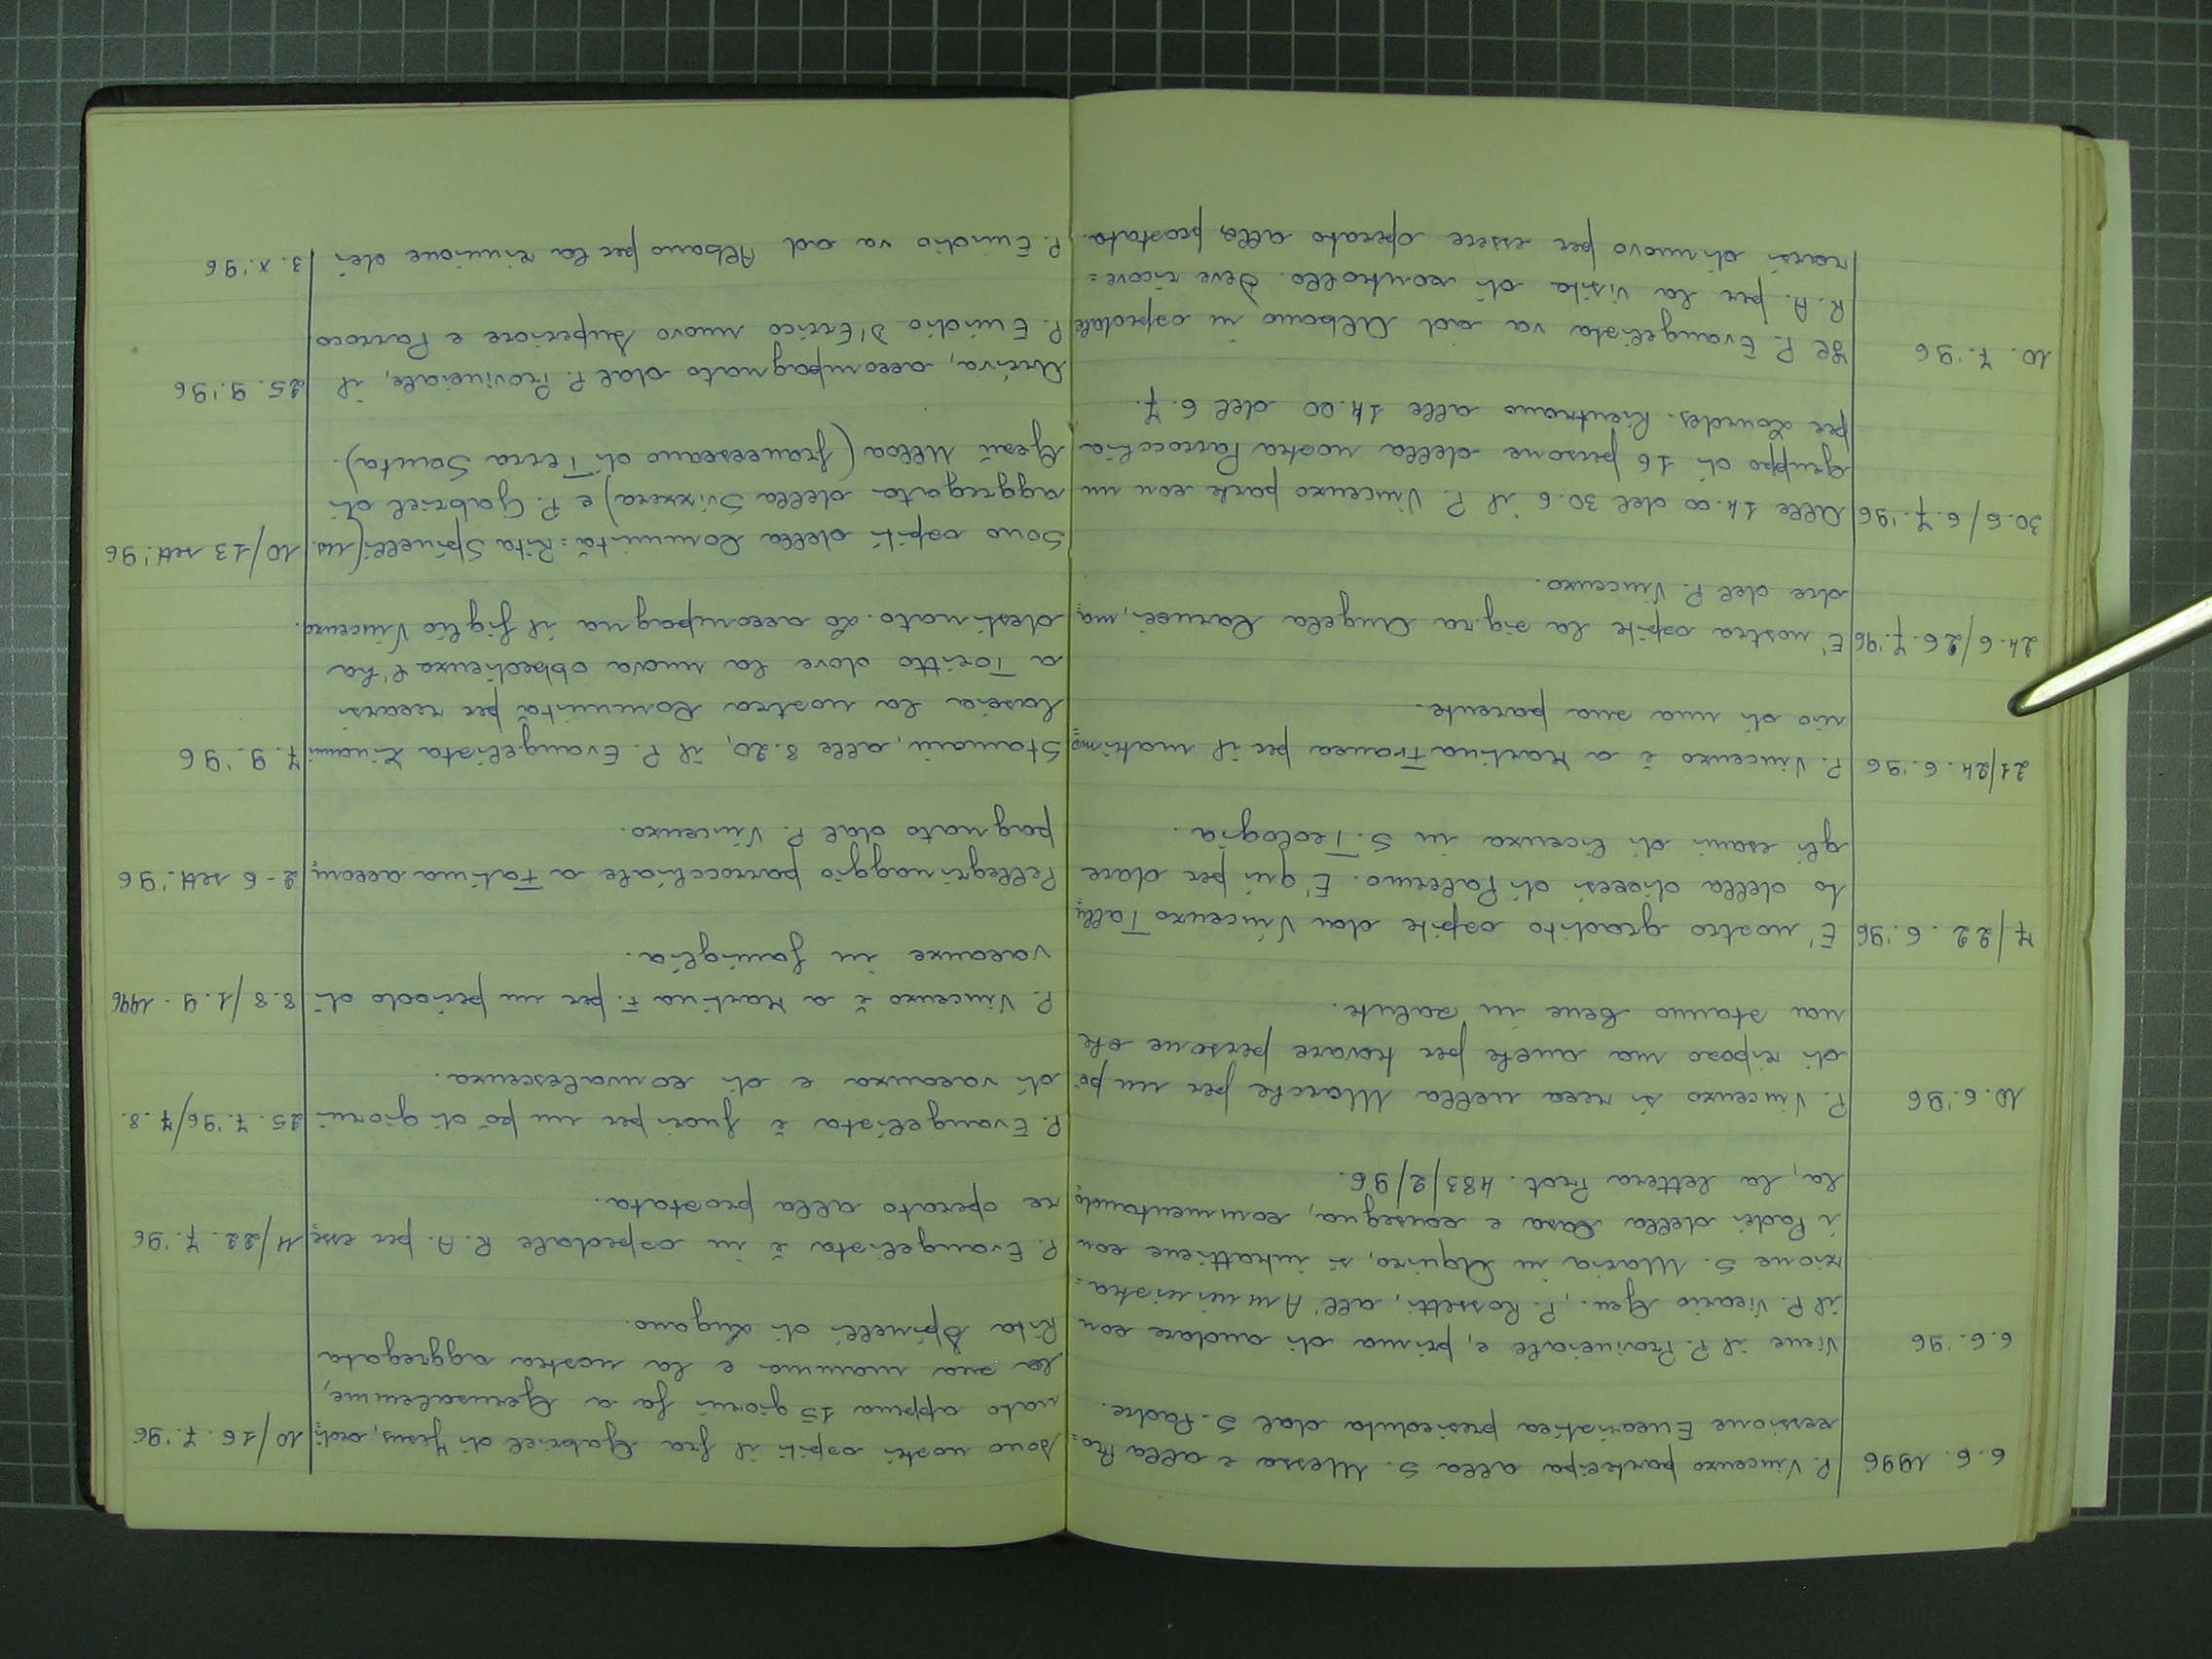 6.6.1996 P. Vincenzo partecipa alla S. Messa e alla Pro=
cessione Eucaristica presieduta dal S. Padre.
6.6.'96 Viene il P. Provinciale e, prima di andare con
il P. Vicario Gen., P. Rossetti, all'Amministra=
zione S. Maria in Aquiro, si intrattiene con
i Padri della Casa e consegna, commentando=
la, la lettera Prot. 483/2/96.
10.6.'96 P. Vincenzo si reca nella Marche per un pò
di riposo ma anche per trovare persone che
non stanno bene in salute.
7/22.6.'96 E' nostro gradito ospite don Vincenzo Tally=
to della diocesi di Palermo. E' qui per dare
gli esami di licenza in S. Teologia.
21/24.6.'96 P. Vincenzo è a Martina Franca per il matrimo=
nio di una sua parente.
24.6/26.7.'96 E' nostra ospite la sig.ra Angela Carucci, ma=
dre del P. Vincenzo.
30.6/6.7.'96 Alle 14.00 del 30.6 il P. Vincenzo parte con un
gruppo di 16 persone della nostra Parrocchia
per Lourdes. Rientrano alle 14.00 del 6.7.
10.7.'96 Il P. Evangelista va ad Albano in ospedale
R.A. per la visita di controllo. Deve ricove=
rarsi di nuovo per essere operato alla prostata.
10/16.7.'96 Sono nostri ospiti il fra Gabriel di Jesus, ordi=
nato appena 15 giorni fa a Gerusalemme,
la sua mamma e la nostra aggregata
Rita Spinelli di Lugano.
11/22.7.'96 P. Evangelista è in ospedale R.A. per esse=
re operato alla prostata.
25.7.'96/7.8. P. Evangelista è fuori per un pò di giorni
di vacanza e di convalescenza.
8.8/1.9.1996 P. Vincenzo è a Martina F. per un periodo di
vacanze in famiglia.
2-6 sett.'96 Pellegrinaggio parrocchiale a Fatima accom=
pagnato dal P. Vincenzo.
7.9.'96 Stamani, alle 8.20, il P. Evangelista Zivanni
lascia la nostra Comunità per recarsi
a Toritto dove la nuova obbedienza l'ha
destinato. Lo accompagna il figlio Vincenzo.
10/13 sett.'96 Sono ospiti della Comunità: Rita Spinelli (ns.
aggregata della Svizzera) e P. Gabriel di
Gesù Ulloa (francescano di Terra Santa).
25.9.'96 Arriva, accompagnato dal P. Provinciale, il
P. Emidio D'Errico nuovo Superiore e Parroco.
3.X.'96 P. Emidio va ad Albano per la riunione dei